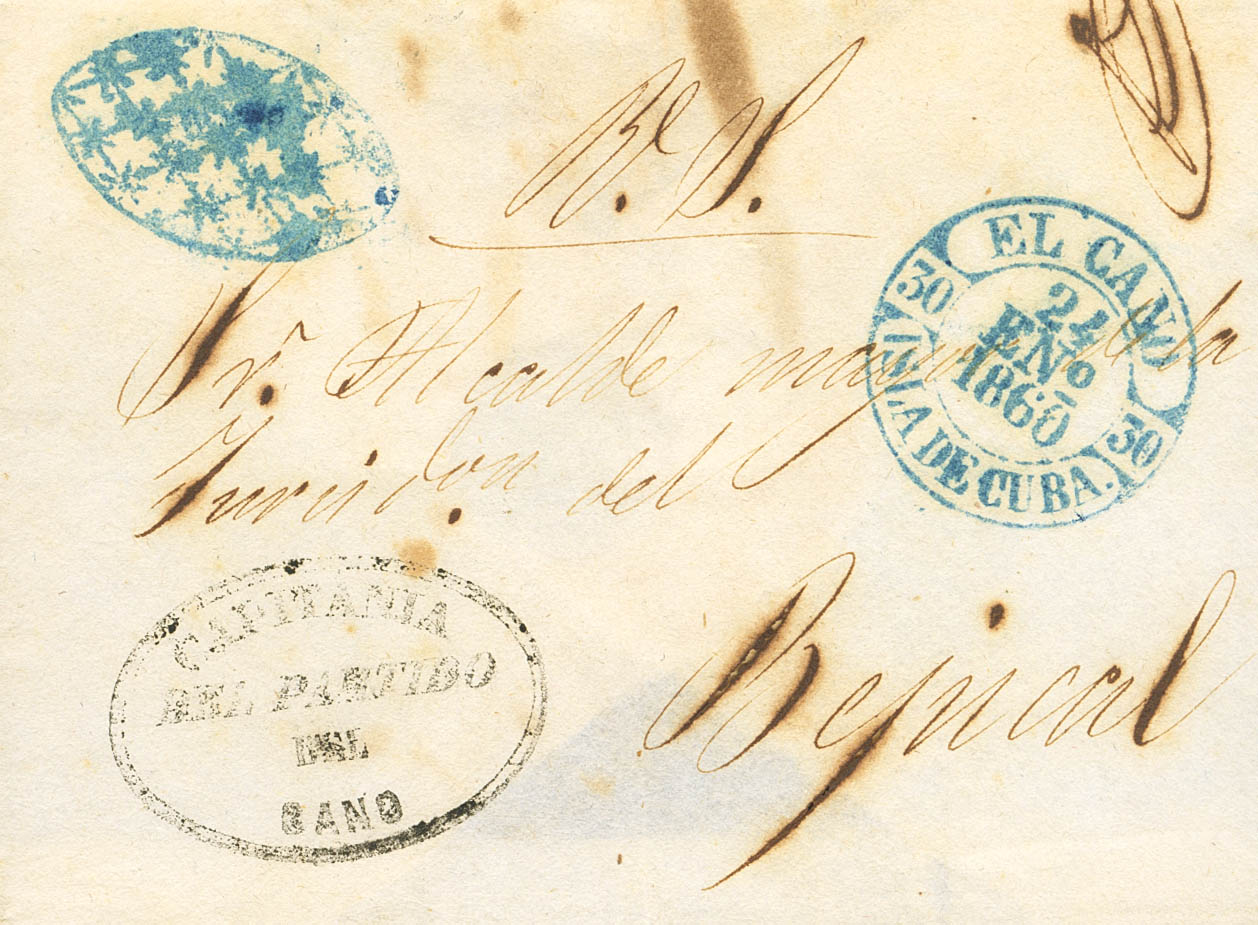 Rl. S.
EL CANO
30 30
24
ENº
1860
ISLA DE CUBA.
Sr. Alcalde mayor de la
Jurisdon. del
Bejucal
CAPITANIA
DEL PARTIDO
DEL
CANO